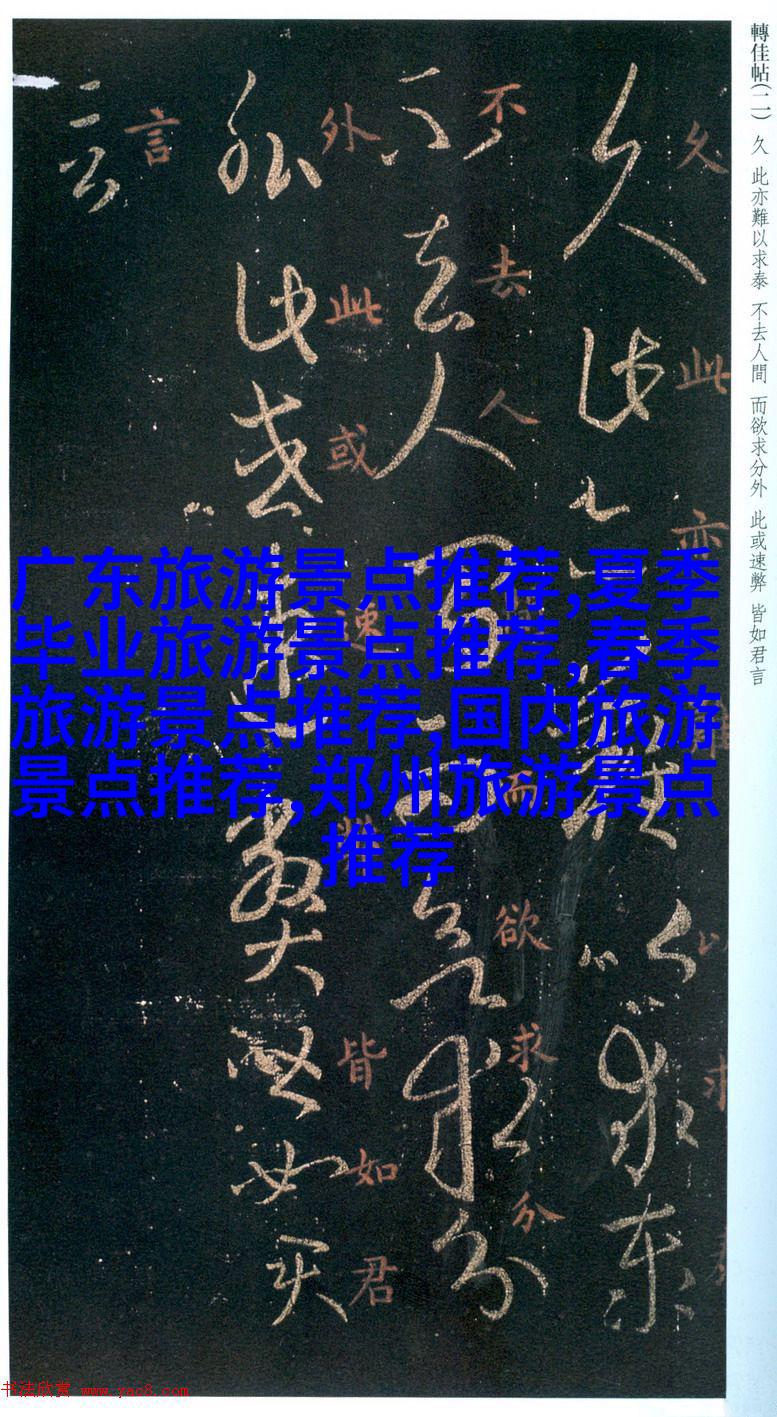 轉佳帖(二) 久 此亦難以求泰 不去人間 而欲求分外 此或速弊 皆如君言
久此亦難以求泰
久此亦難以求泰
不去人間而欲求分
不去人間而欲求分
外此或速弊皆如君
外此或速弊皆如君
言
言
广东旅游景点推荐,夏季
毕业旅游景点推荐,春季
旅游景点推荐,国内旅游
景点推荐,郑州旅游景点
推荐
书法欣赏 www.yac8.com